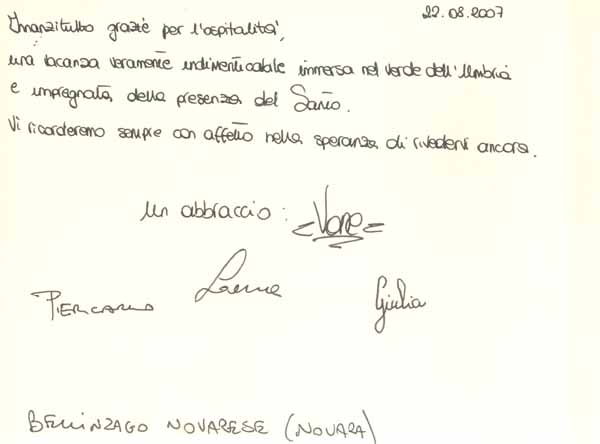 22.08.2007
Innanzitutto grazie per l'ospitalità,
una vacanza veramente indimenticabile immersa nel verde dell'Umbria
e impregnata della presenza del Santo.
Vi ricorderemo sempre con affetto nella speranza di rivedervi ancora.
Un abbraccio:
PIERCARLO Giulia
BELLINZAGO NOVARESE (NOVARA)